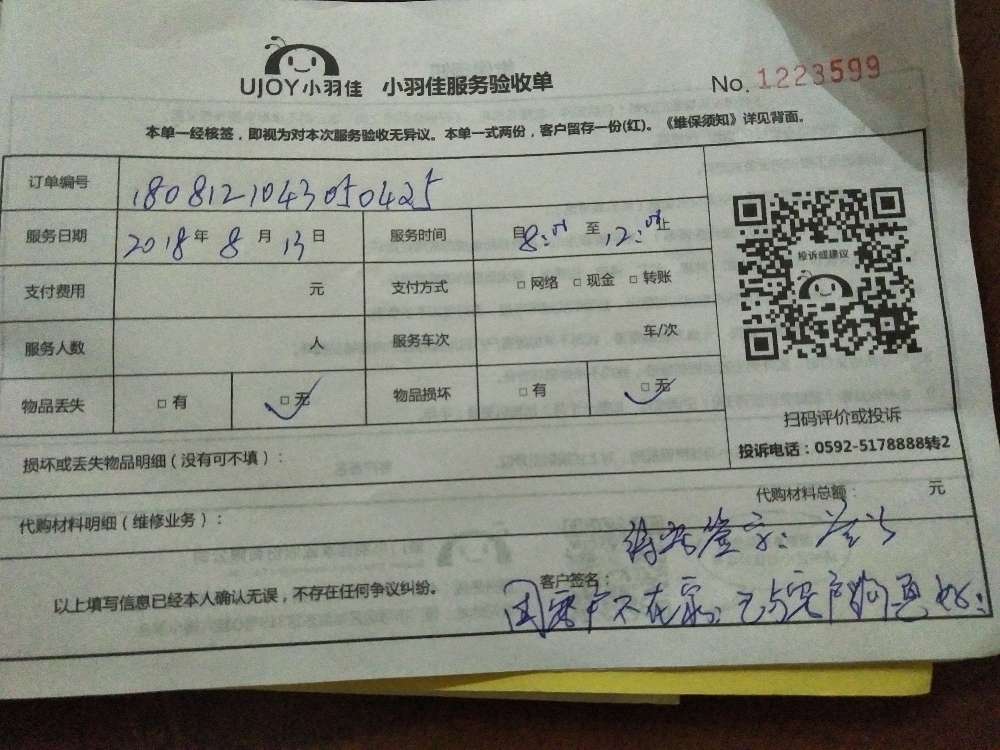 UJOY小羽佳 小羽佳服务验收单 No. 1223599
本单一经核签，即视为对本次服务验收无异议。本单一式两份，客户留存一份(红)。《维保须知》详见背面。
订单编号 1808121043050425
服务日期 2018年8月13日 服务时间 自8:00至12:00止
支付费用 元 支付方式 □网络 □现金 □转账
服务人数 人 服务车次 车/次
物品丢失 □有 □无 物品损坏 □有 □无
投诉或建议
扫码评价或投诉
投诉电话：0592-5178888转2
损坏或丢失物品明细（没有可不填）：
代购材料明细（维修业务）： 代购材料总额： 元
签字：
以上填写信息已经本人确认无误，不存在任何争议纠纷。 客户签名：
因客户不在家，已与客户沟通好：